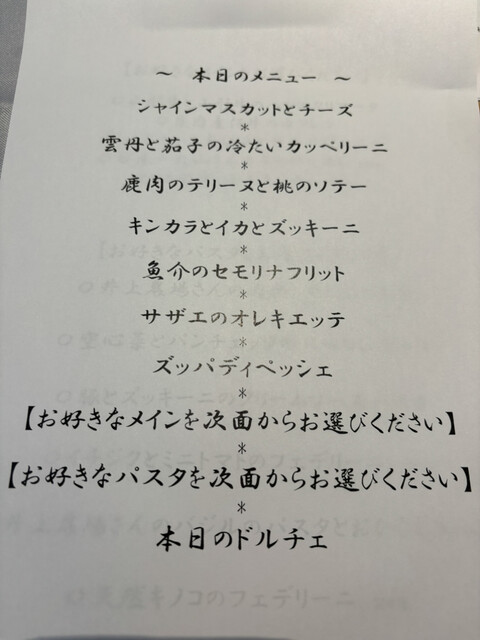 ～ 本日のメニュー ～
シャインマスカットとチーズ
*
雲丹と茄子の冷たいカッペリーニ
*
鹿肉のテリーヌと桃のソテー
*
キンカラとイカとズッキーニ
*
魚介のセモリナフリット
*
サザエのオレキエッテ
*
ズッパディペッシェ
*
【お好きなメインを次面からお選びください】
*
【お好きなパスタを次面からお選びください】
*
本日のドルチェ